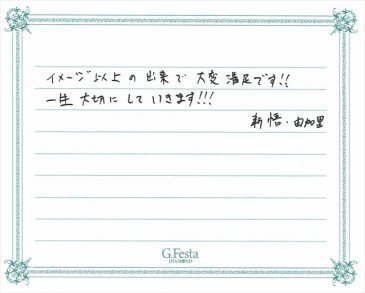 イメージ以上の出来で大変満足です!!
一生大切にしていきます!!!
新悟・由加里
G.Festa
DIAMOND